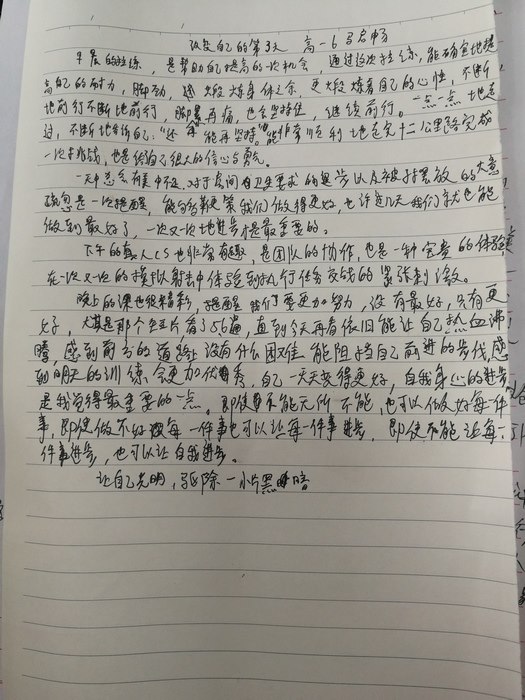 改变自己的第3天 高一6 马启畅
早晨的拉练，是帮助自己提高的一次机会，通过这次拉练，能确实地提
高自己的耐力，脚劲，还锻炼身体之余，更锻炼着自己的心性，不断
地前行不断地前行，脚累再痛，也会坚持住，继续前行。一点一点地走
过，不断地告诉自己："还能再坚持。"能非常顺利地走完十二公里路完成
一次挑战，也是给自己很大的信心与勇气。
一天中总会有美中不足，对于房间内卫生要求的退步以及被子摆放的大意
疏忽是一次提醒，能够鞭策我们做得更好，也许这几天我们就也能
做到最好了，一次又一次地进步才是最重要的。
下午的真人CS也非常有趣，是团队的协作，也是一种宝贵的体验，
在一次又一次的模拟射击中体验到执行任务交战的紧张刺激。
晚上的课也很精彩，提醒我们要更加努力，没有最好，只有更
好，尤其是那个短片看了55遍，直到今天再看依旧能让自己热血沸
腾，感到前方的道路没有什么困难能阻挡自己前进的步伐，感
到明天的训练会更加优秀，自己一天天变得更好，自我身心的进步
是我觉得最重要的一点。即使不能无所不能，也可以做好每一件
事，即使做不好每一件事也可以让每一件事进步，即使不能让每一
件事进步，也可以让自我进步。
让自己光明，驱除一小片黑暗